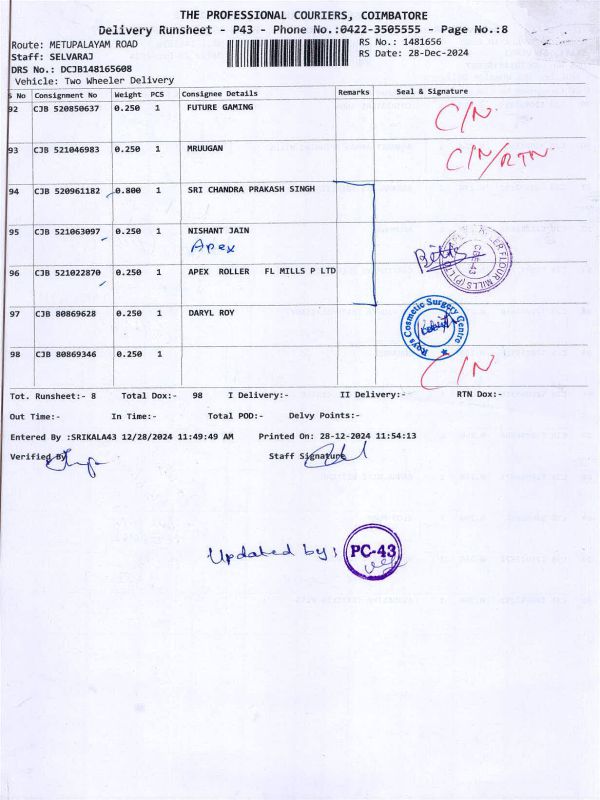 THE PROFESSIONAL COURIERS, COIMBATORE
Delivery Runsheet - P43 - Phone No.:0422-3505555 - Page No.:8
Route: METUPALAYAM ROAD RS No.: 1481656
Staff: SELVARAJ RS Date: 28-Dec-2024
DRS No.: DCJB148165608
Vehicle: Two Wheeler Delivery
S No Consignment No Weight PCS Consignee Details Remarks Seal & Signature
92 CJB 520850637 0.250 1 FUTURE GAMING C/N
93 CJB 521046983 0.250 1 MRUUGAN C/N/RTN
94 CJB 520961182 0.800 1 SRI CHANDRA PRAKASH SINGH
95 CJB 521063097 0.250 1 NISHANT JAIN
Apex
96 CJB 521022870 0.250 1 APEX ROLLER FL MILLS P LTD
97 CJB 80869628 0.250 1 DARYL ROY Roys Cosmetic Surgery Centre
98 CJB 80869346 0.250 1 C/N
Tot. Runsheet:- 8 Total Dox:- 98 I Delivery:- II Delivery:- RTN Dox:-
Out Time:- In Time:- Total POD:- Delvy Points:-
Entered By :SRIKALA43 12/28/2024 11:49:49 AM Printed On: 28-12-2024 11:54:13
Verified By Staff Signature
Updated by: PC-43